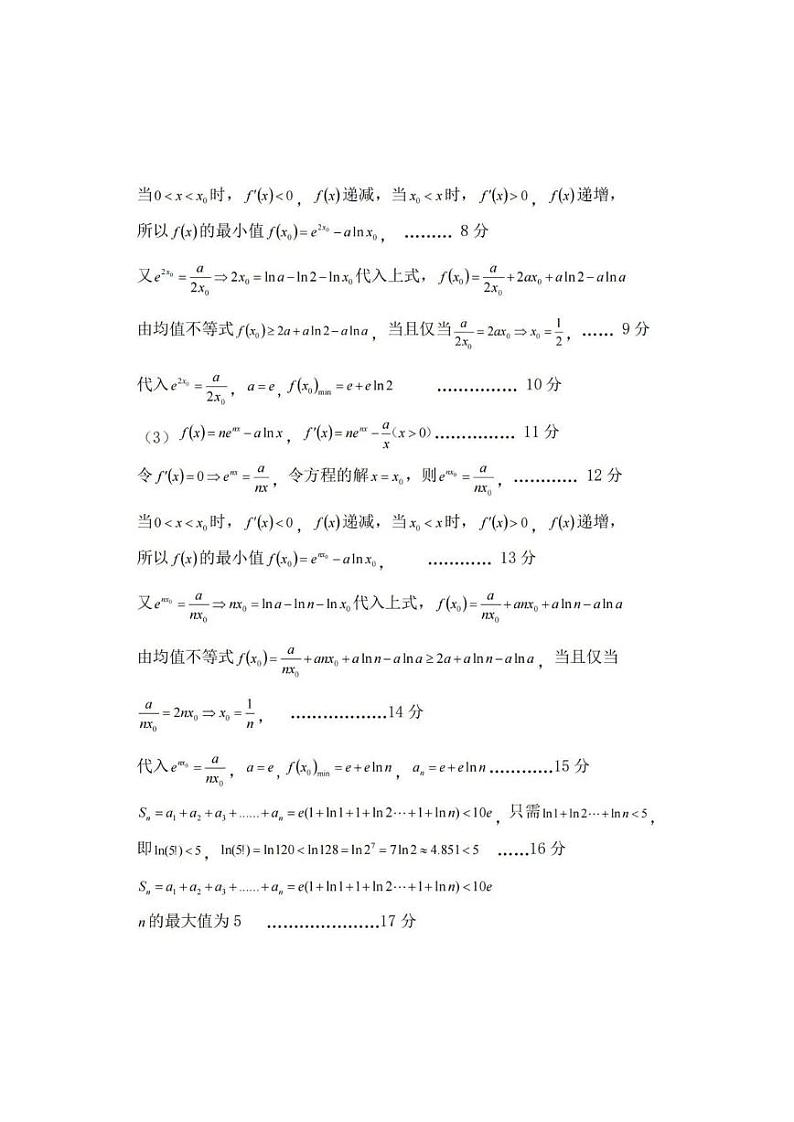 当0 < x < x₀时，f′(x)<0，f(x)递减，当x₀ < x时，f′(x)>0，f(x)递增，
所以f(x)的最小值f(x₀)=e^{2x₀}−aln x₀， ……… 8 分
又e^{2x₀}=a/(2x₀)⇒2x₀=ln a−ln 2−ln x₀代入上式，f(x₀)=a/(2x₀)+2ax₀+aln 2−aln a
由均值不等式f(x₀)≥2a+aln 2−aln a，当且仅当a/(2x₀)=2ax₀⇒x₀=1/2，…… 9 分
代入e^{2x₀}=a/(2x₀)，a=e，f(x₀)min=e+eln 2 …………… 10 分
（3）f(x)=ne^{nx}−aln x，f′(x)=ne^{nx}−a/x（x>0）…………… 11 分
令f′(x)=0⇒e^{nx}=a/(nx)，令方程的解x=x₀，则e^{nx₀}=a/(nx₀)，………… 12 分
当0 < x < x₀时，f′(x)<0，f(x)递减，当x₀ < x时，f′(x)>0，f(x)递增，
所以f(x)的最小值f(x₀)=e^{nx₀}−aln x₀， ………… 13 分
又e^{nx₀}=a/(nx₀)⇒nx₀=ln a−ln n−ln x₀代入上式，f(x₀)=a/(nx₀)+anx₀+aln n−aln a
由均值不等式f(x₀)=a/(nx₀)+anx₀+aln n−aln a≥2a+aln n−aln a，当且仅当
a/(nx₀)=2nx₀⇒x₀=1/n， ………………14 分
代入e^{nx₀}=a/(nx₀)，a=e，f(x₀)min=e+eln n，aₙ=e+eln n…………15 分
Sₙ=a₁+a₂+a₃+......+aₙ=e(1+ln1+1+ln 2⋯+1+ln n)<10e，只需ln1+ln 2⋯+ln n<5，
即ln(5!)<5，ln(5!)=ln120<ln128=ln2⁷=7ln2≈4.851<5 ……16 分
Sₙ=a₁+a₂+a₃+......+aₙ=e(1+ln1+1+ln 2⋯+1+ln n)<10e
n的最大值为 5 …………………17 分